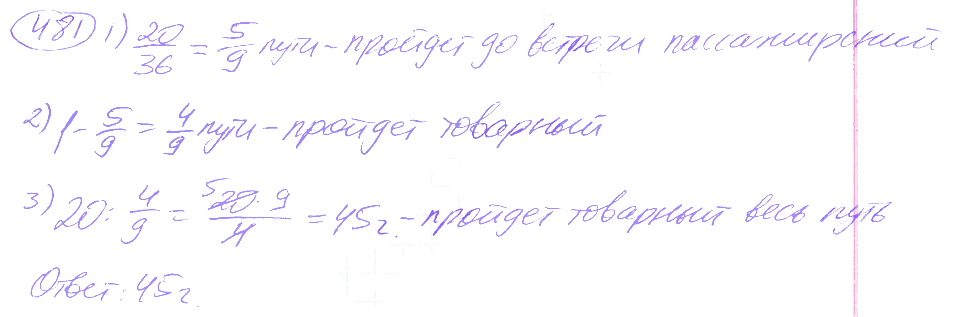 481 1) 20/36 = 5/9 пути - пройдет до встречи пассажирский
2) 1 - 5/9 = 4/9 пути - пройдет товарный
3) 20 : 4/9 = 20·9/4 = 45 г. - пройдет товарный весь путь
Ответ: 45 г.